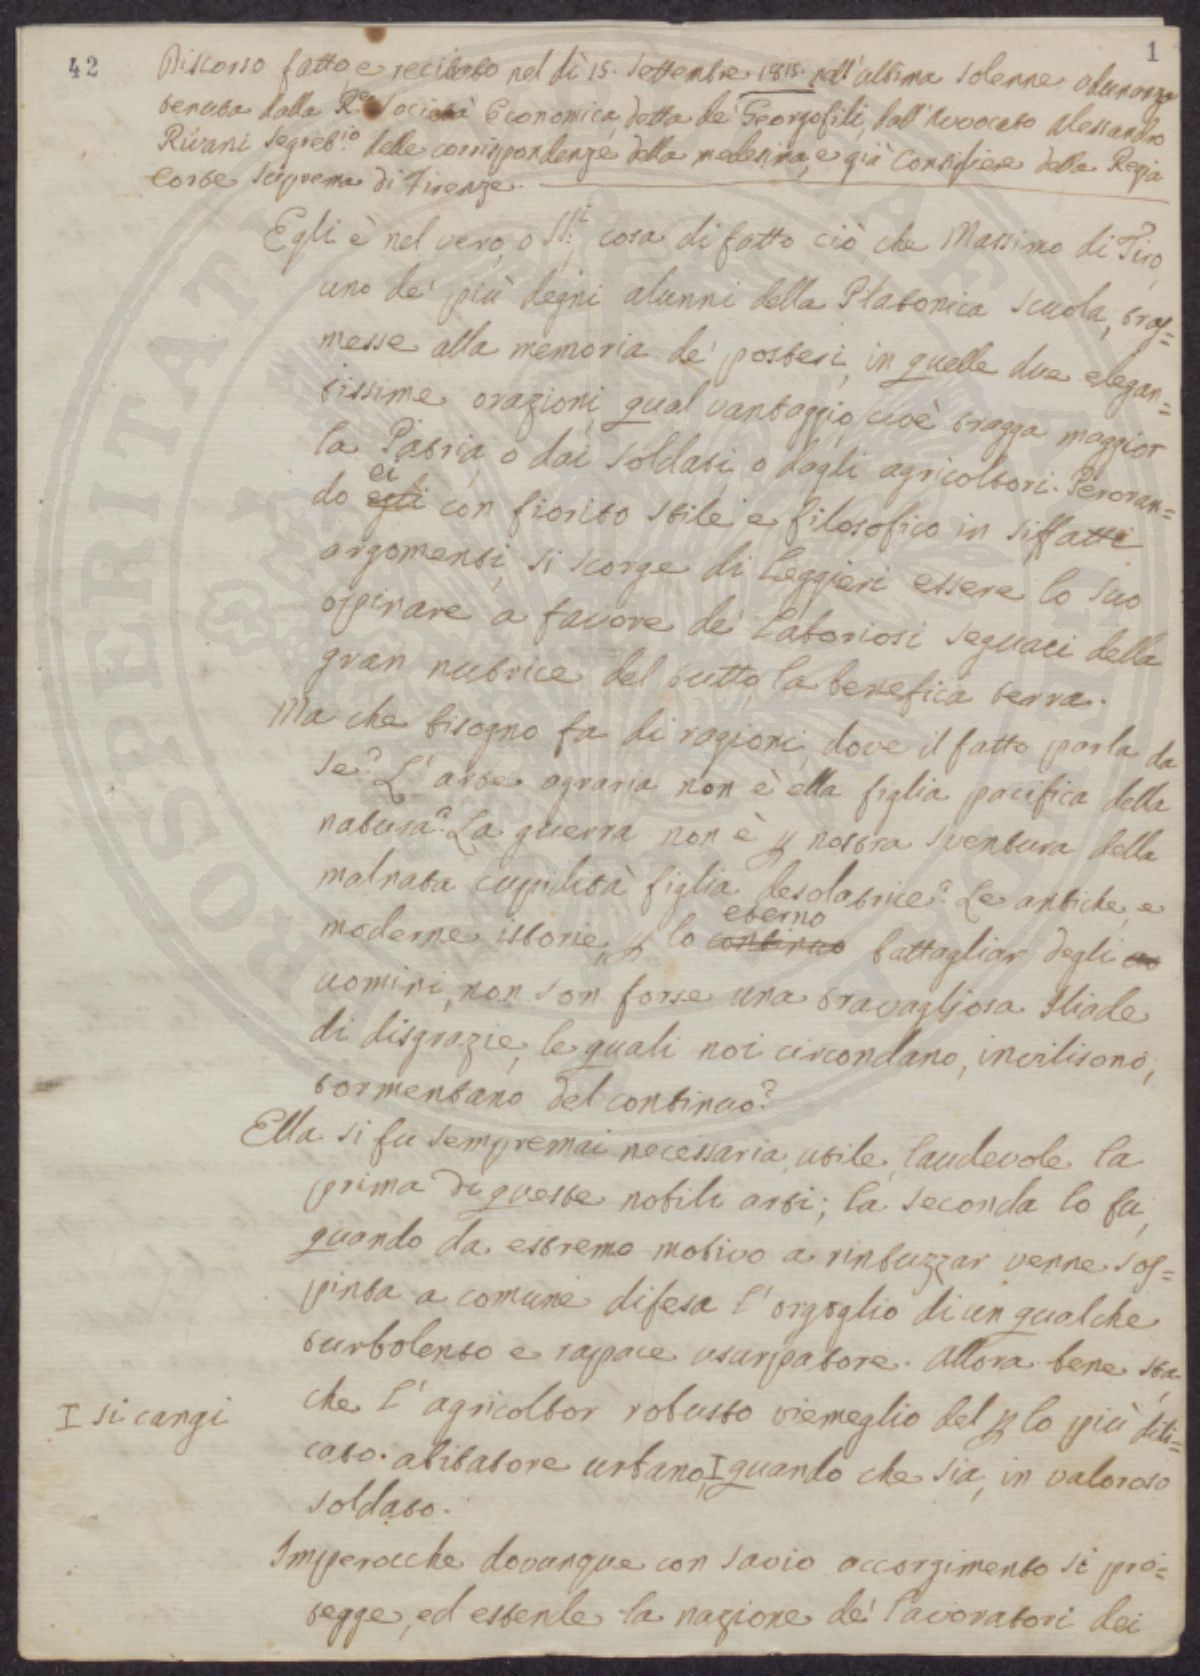 42
1
Discorso fatto e recitato nel dì 15. Settembre 1815. nell'ultima solenne adunanza
tenuta dalla R.e Società Economica, detta de' Georgofili, dall'Avvocato Alessandro
Rivani Segret.io delle corrispondenze della medesima, e già Consigliere della Regia
Corte Suprema di Firenze.
Egli è nel vero, o SS.i, cosa di fatto ciò che Massimo di Tiro,
uno de' più degni alunni della Platonica scuola, tras=
messe alla memoria de' posteri, in quelle due elegan=
tissime orazioni, qual vantaggio, cioè tragga maggior
la Patria, o dai soldati, o dagli agricoltori. Peroran=
ei
do egli con fiorito stile e filosofico in siffatti
argomenti, si scorge di leggieri essere lo suo
opinare a favore de' laboriosi seguaci della
gran nutrice del tutto, la benefica terra.
Ma che bisogno fa di ragioni, dove il fatto parla da
se? L'arte agraria non è ella figlia pacifica della
natura? La guerra non è p nostra sventura della
malnata cupidità figlia desolatrice? Le antiche, e
eterno
moderne istorie, p lo continuo battagliar degli uo
uomini, non son forse una travagliosa Iliade
di disgrazie, le quali noi circondano, inviliscono,
tormentano del continuo?
Ella si fu sempremai necessaria, utile, laudevole la
prima di queste nobili arti; la seconda lo fu,
quando da estremo motivo a rintuzzar venne sos=
pinta a comune difesa l'orgoglio di un qualche
turbolento e rapace usurpatore. Allora bene sta,
che l'agricoltor robusto viemeglio del p lo più dili=
cato abitatore urbano, I quando che sia, in valoroso
I si cangi
soldato.
Imperocche dovunque con savio accorgimento si pro=
tegge, ed estende la nazione de' lavoratori dei